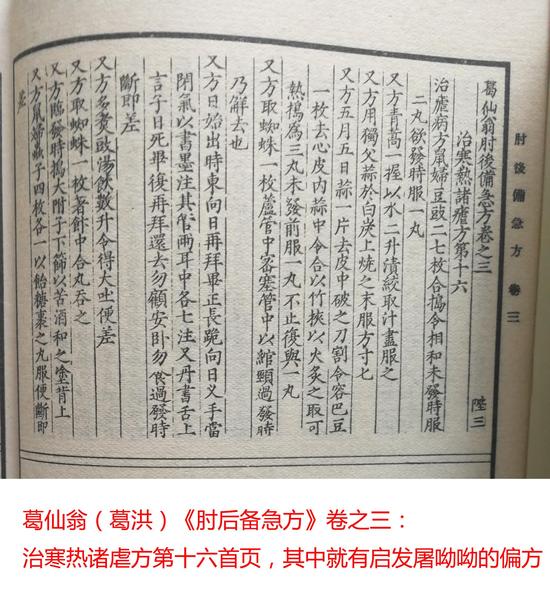 肘後備急方 卷三
葛仙翁肘後備急方卷之三 陞三
治寒熱諸瘧方第十六
治瘧病方鼠婦豆豉二七枚合搗令相和未發時服
二丸欲發時服一丸
又方青蒿一握以水二升漬絞取汁盡服之
又方用獨父蒜於白炭上燒之末服方寸匕
又方五月五日蒜一片去皮中破之刀割令容巴豆
一枚去心皮內蒜中令合以竹挾以火炙之取可
熱搗為三丸未發前服一丸不止復與一丸
又方取蜘蛛一枚蘆管中密塞管中以綰頸過發時
乃解去也
又方日始出時東向日再拜畢正長跪向日叉手當
閉氣以書墨注其管兩耳中各七注又丹書舌上
言子日死畢復再拜還去勿顧安臥勿食過發時
斷即差
又方多煑豉湯飲數升令得大吐便差
又方取蜘蛛一枚着飯中合丸吞之
又方臨發時搗大附子下篩以苦酒和之塗背上
又方鼠婦蟲子四枚各一以飴糖裹之丸服便斷即
差
葛仙翁（葛洪）《肘后备急方》卷之三：
治寒热诸虐方第十六首页，其中就有启发屠呦呦的偏方